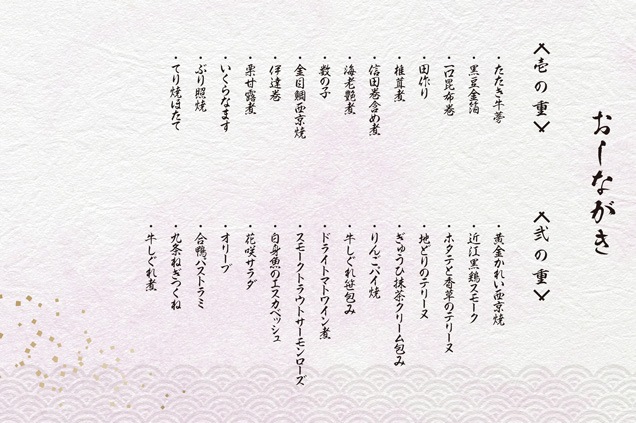 おしながき
壱の重
・たたき牛蒡
・黒豆金箔
・一口昆布巻
・田作り
・椎茸煮
・信田巻含め煮
・海老艶煮
・数の子
・金目鯛西京焼
・伊達巻
・栗甘露煮
・いくらなます
・ぶり照焼
・てり焼ほたて
弐の重
・黄金かれい西京焼
・近江黒鶏スモーク
・ホタテと香草のテリーヌ
・地どりのテリーヌ
・ぎゅうひ抹茶クリーム包み
・りんごパイ焼
・牛しぐれ笹包み
・ドライトマトワイン煮
・スモークトラウトサーモンローズ
・白身魚のエスカベッシュ
・花咲サラダ
・オリーブ
・合鴨パストラミ
・九条ねぎつくね
・牛しぐれ煮